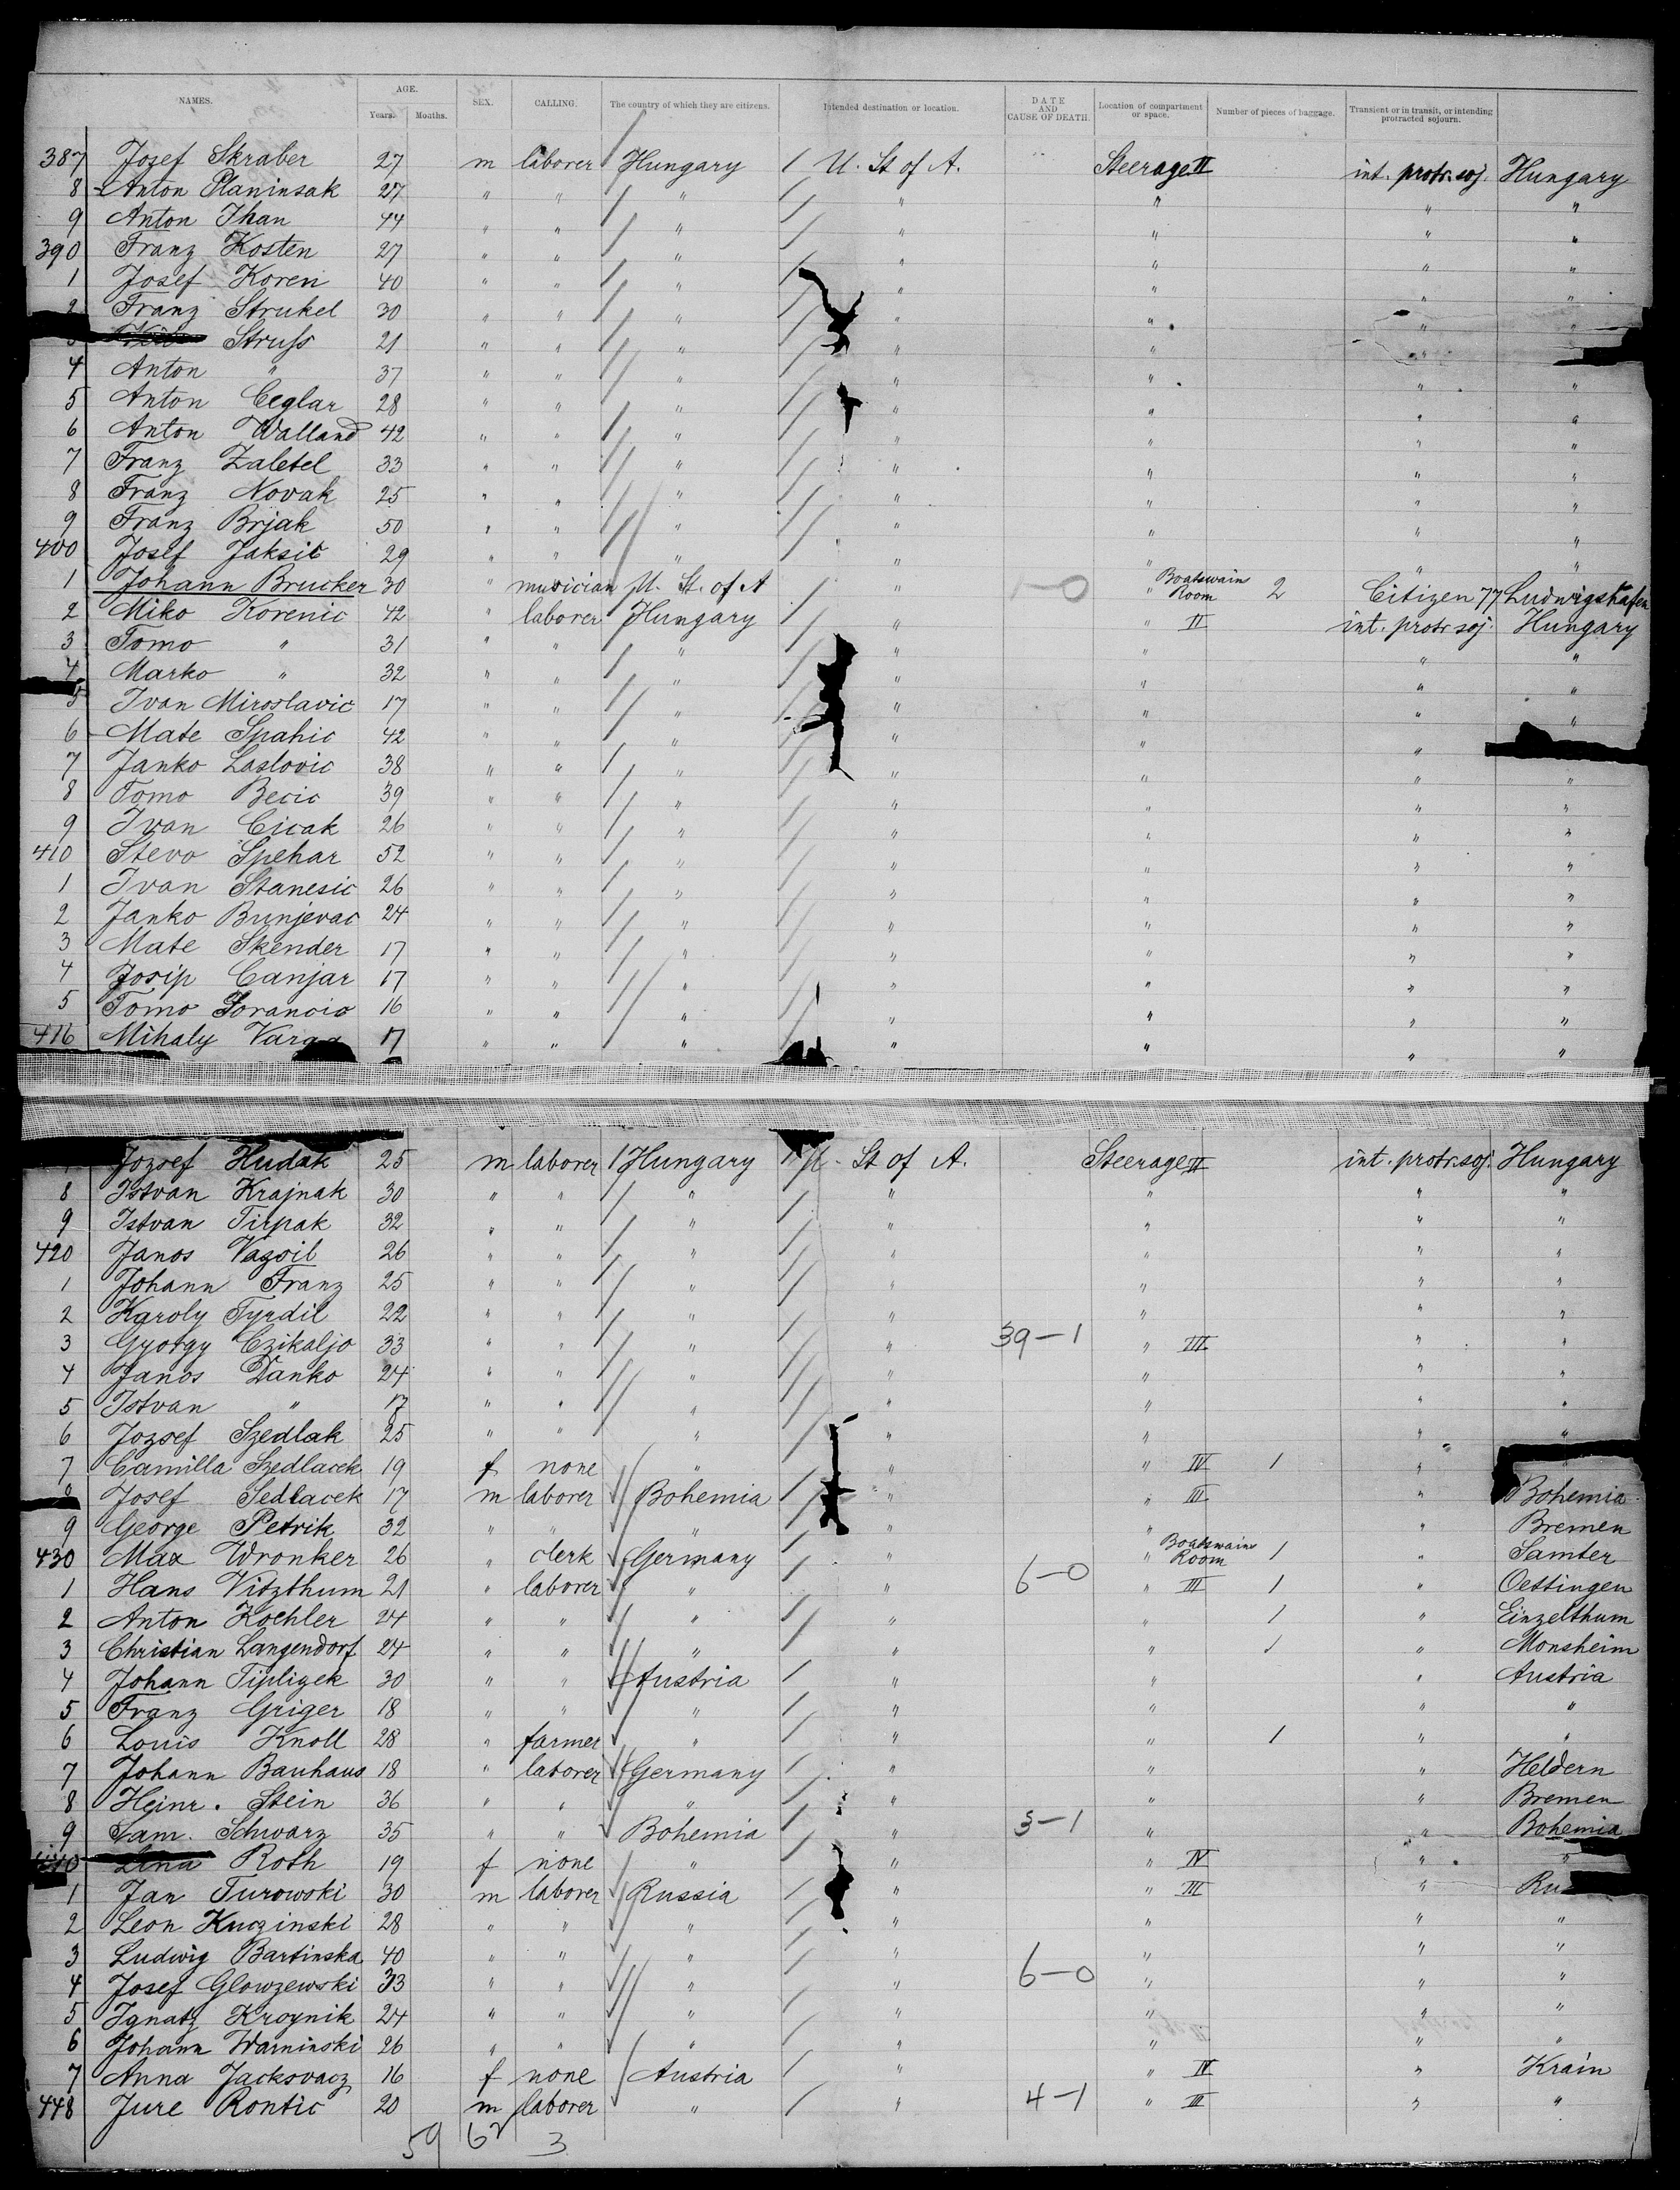 NAMES. AGE. Years. Months. SEX. CALLING. The country of which they are citizens. Intended destination or location. DATE AND CAUSE OF DEATH. Location of compartment or space. Number of pieces of baggage. Transient or in transit, or intending protracted sojourn.
387 Josef Skraber 27 m laborer Hungary / U. St of A. Steerage II int. protr. soj. Hungary
8 Anton Planinsak 27 " " / " / " " " "
9 Anton Ihan 44 " " / " / " " " "
390 Franz Kosten 27 " " / " / " " " "
1 Josef Koren 40 " " / " / " " " "
2 Franz Strukel 30 " " / " / " " " "
3 Struss 21 " " / " / " " " "
4 Anton " 37 " " / " / " " " "
5 Anton Ceglar 28 " " / " / " " " "
6 Anton Walland 42 " " / " / " " " "
7 Franz Zaletel 33 " " / " / " " " "
8 Franz Novak 25 " " / " / " " " "
9 Franz Brjak 50 " " / " / " " " "
400 Josef Jaksic 29 " " / " / " " " "
1 Johann Brucker 30 " musician U. St. of A / " 1-0 " Boatswain Room 2 Citizen 77 Ludwigshafen
2 Miko Korenic 42 " laborer Hungary / " " II int. protr soj. Hungary
3 Tomo " 31 " " / " / " " " "
4 Marko " 32 " " / " / " " " "
5 Ivan Miroslavic 17 " " / " / " " " "
6 Mate Spahic 42 " " / " / " " "
7 Janko Laslovic 38 " " / " / " " " "
8 Tomo Becic 39 " " / " / " " " "
9 Ivan Cicak 26 " " / " / " " " "
410 Stevo Spehar 52 " " / " / " " " "
1 Ivan Stanesic 26 " " / " / " " " "
2 Janko Bunjevac 24 " " / " / " " " "
3 Mate Skender 17 " " / " / " " " "
4 Josip Canjar 17 " " / " / " " " "
5 Tomo 16 " " / " / " " " "
416 Mihaly Varga 17 " " " " " " "
Jozsef Hudak 25 m laborer / Hungary / U. St of A. Steerage II int. protr. soj. Hungary
8 Istvan Krajnak 30 " " / " / " " " "
9 Istvan Tirpak 32 " " / " / " " " "
420 Janos Vazsil 26 " " / " / " " " "
1 Johann Franz 25 " " / " / " " " "
2 Karoly Tyrdil 22 " " / " / " " " "
3 Gyorgy Czikaljo 33 " " / " / " 39-1 " III " "
4 Janos Danko 24 " " / " / " " " "
5 Istvan " 17 " " / " / " " " "
6 Jozsef Szedlak 25 " " " / " " " "
7 Camilla Szedlacek 19 f none / " / " " IV 1 "
8 Josef Sedlacek 17 m laborer Bohemia / " " III " Bohemia
9 George Petrik 32 " " " / " " " Bremen
430 Max Wronker 26 " clerk Germany / " " Boatswains Room 1 " Samter
1 Hans Vitzthum 21 " laborer " / " 6-0 " III 1 " Oettingen
2 Anton Koehler 24 " " / " / " " 1 " Einzelthum
3 Christian Langendorf 24 " " / " / " " 1 " Monsheim
4 Johann Tipligek 30 " " Austria / " " " Austria
5 Franz Griger 18 " " " / " " " "
6 Louis Knoll 28 " farmer " / " " 1 " "
7 Johann Bauhaus 18 " laborer Germany / " " " Heldern
8 Heinr. Stein 36 " " " / " " " Bremen
9 Sam. Schwarz 35 " " Bohemia / " 3-1 " " Bohemia
440 Lina Roth 19 f none / " / " " IV " "
1 Jan Turowski 30 m laborer Russia / " " III " Ru
2 Leon Kuczinski 28 " " " / " " " "
3 Ludwig Bartinska 40 " " " / " " " "
4 Josef Glowzewski 33 " " " / " 6-0 " " "
5 Ignatz Kroynik 24 " " " / " " " "
6 Johann Warninski 26 " " " / " " " "
7 Anna Jacksovacz 16 f none / Austria / " " IV " Krain
448 Jure Rontic 20 m laborer " / " 4-1 " III " "
59 62 3